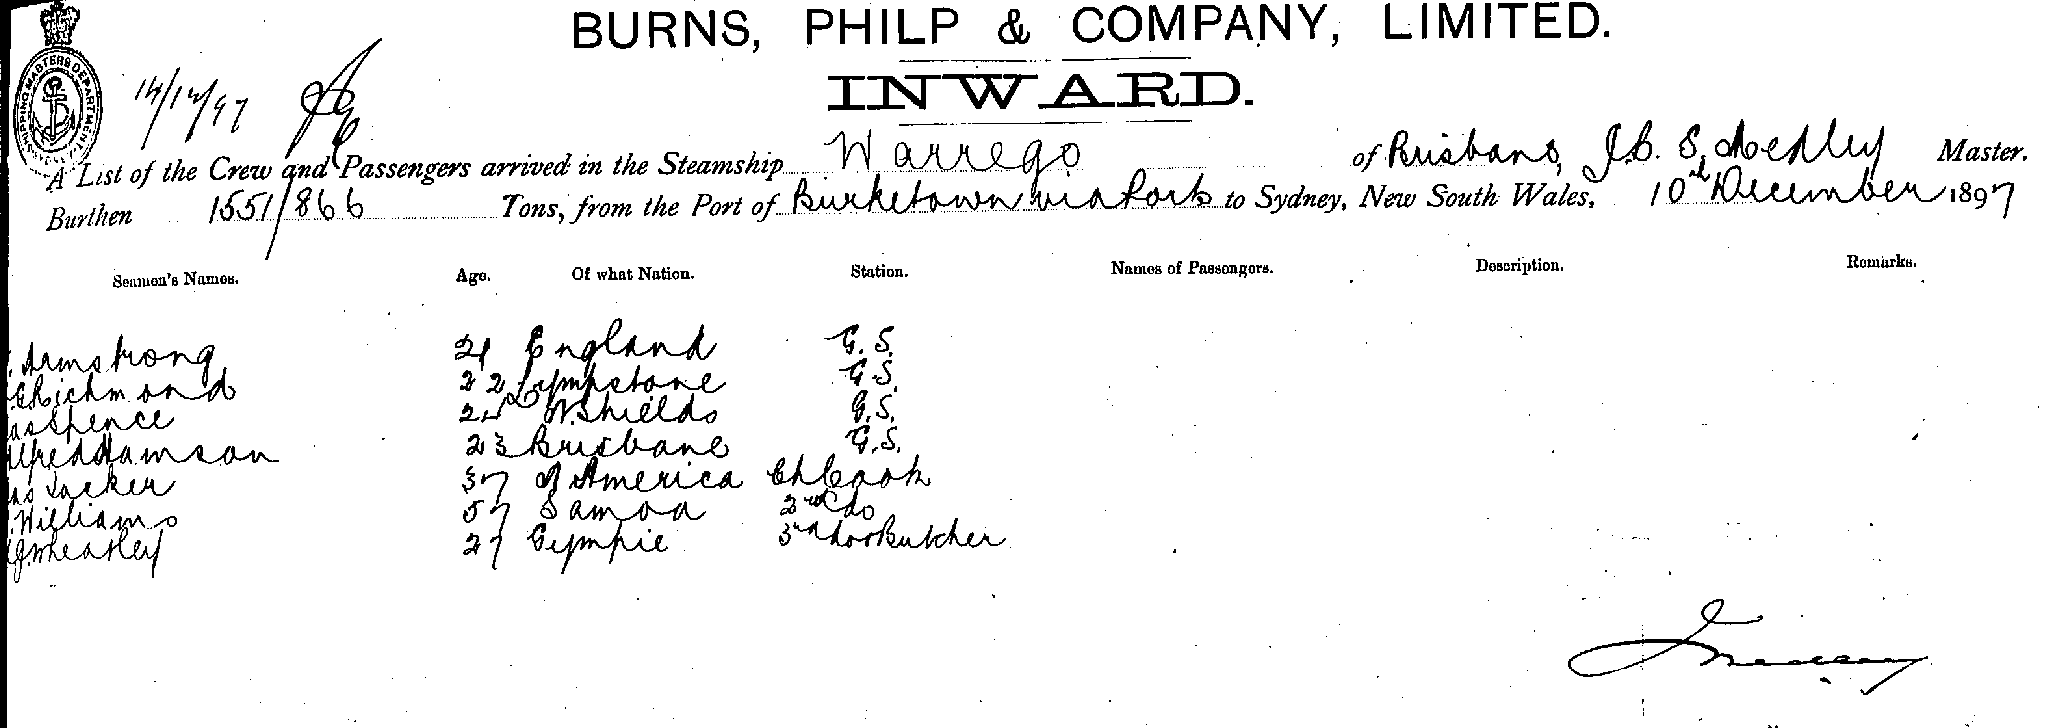 BURNS, PHILP & COMPANY, LIMITED.
INWARD.
14/12/97
A List of the Crew and Passengers arrived in the Steamship Warrego of Brisbane, J.C. S. Medley Master.
Burthen 1551/866 Tons, from the Port of Burketown via Ports to Sydney, New South Wales, 10th December 1897
Seamen's Names. Age. Of what Nation. Station. Names of Passengers. Description. Remarks.
Armstrong 21 England G.S.
Richmond 22 Lympstone G.S.
Spence N.Shields G.S.
Adamson 23 Brisbane G.S.
Tucker 37 America Ch Cook
Williams 57 Samoa 2nd do
Wheatley 27 Gympie 3rd do & Butcher